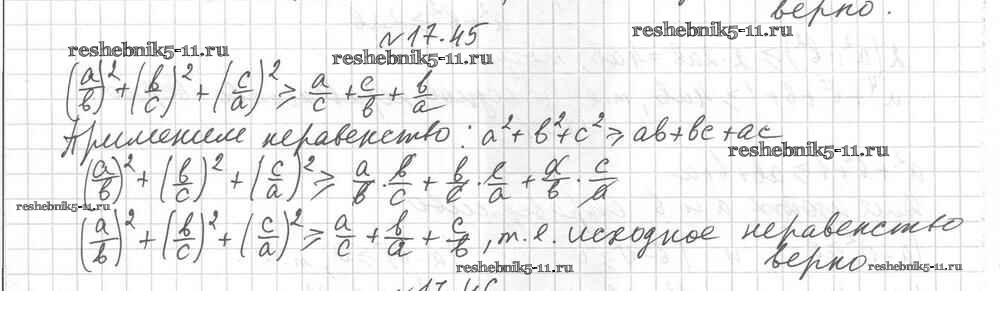 верно.
№17.45
reshebnik5-11.ru reshebnik5-11.ru reshebnik5-11.ru
(a/b)² + (b/c)² + (c/a)² ≥ a/c + c/b + b/a
Применим неравенство: a² + b² + c² ≥ ab + bc + ac
reshebnik5-11.ru
(a/b)² + (b/c)² + (c/a)² ≥ a/b · b/c + b/c · c/a + a/b · c/a
reshebnik5-11.ru
(a/b)² + (b/c)² + (c/a)² ≥ a/c + b/a + c/b, т.е. исходное неравенство
верно
reshebnik5-11.ru reshebnik5-11.ru